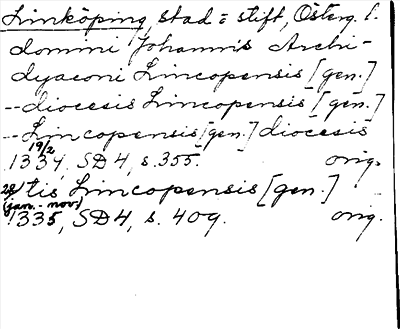 Linköping, stad = stift, Österg. l.
domini Johannis Archi-
dyaconi Lincopensis [gen.]
-- diocesis Lincopensis [gen.]
-- Lincopensis [gen.] diocesis
19/2
1334, SD4, s. 355. orig.
tis Lincopensis [gen.]
(jan. - nov.)
1335, SD4, s. 409. orig.